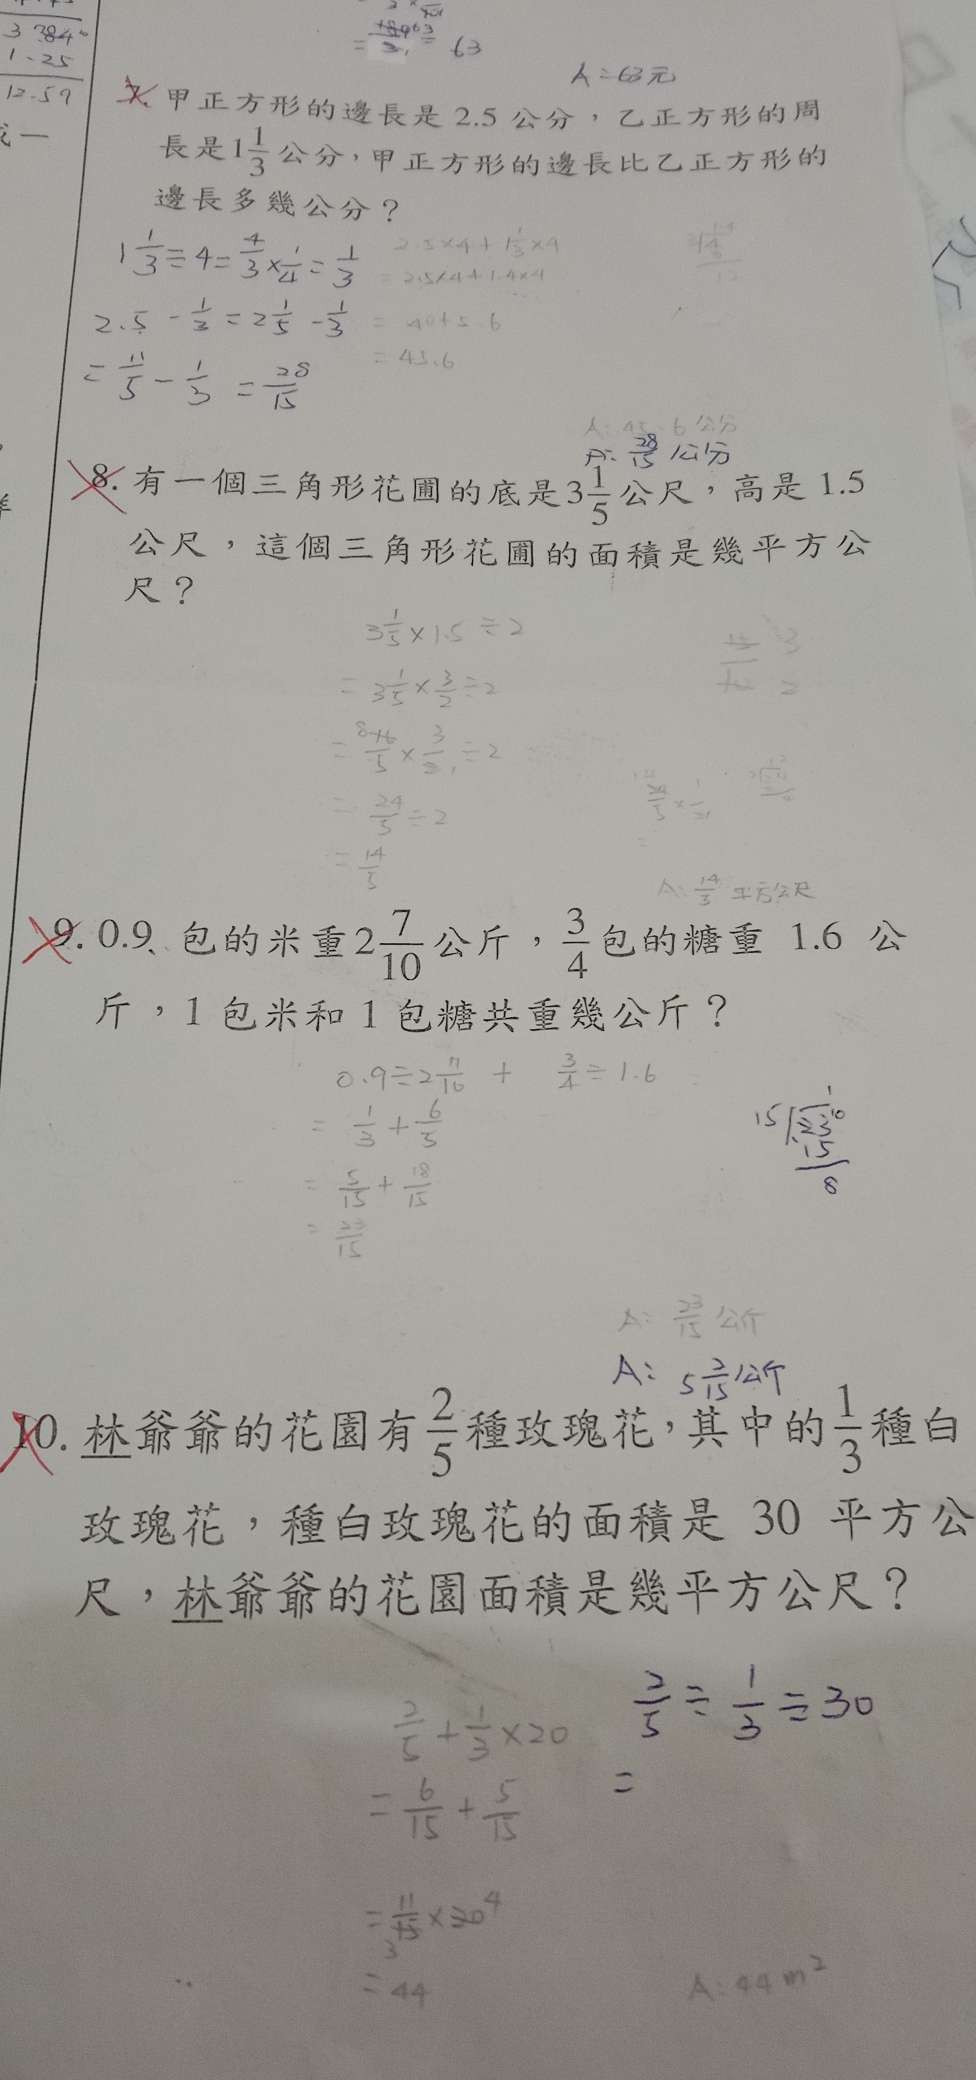 3 384
1.25
12.59
= 63
A=63元
7. 甲正方形的邊長是 2.5 公分，乙正方形的周
長是1 1/3 公分，甲正方形的邊長比乙正方形的
邊長多幾公分？
1 1/3 ÷ 4 = 4/3 × 1/4 = 1/3
2.5 - 1/3 = 2 1/5 - 1/3
= 11/5 - 1/3 = 28/15
2.5×4+1 1/3×4
= 2.5×4+1.4×4
= 40+5.6
= 45.6
A: 45.6 公分
A: 28/15 公分
8. 有一個三角形花圃的底是3 1/5 公尺，高是 1.5
公尺，這個三角形花圃的面積是幾平方公
尺？
3 1/5 × 1.5 ÷ 2
= 3 1/5 × 3/2 ÷ 2
= 16/5 × 3/2 ÷ 2
= 24/5 ÷ 2
= 14/5
A: 14/5 平方公尺
9. 0.9 包的米重2 7/10 公斤，3/4 包的糖重 1.6 公
斤，1 包米和 1 包糖共重幾公斤？
0.9÷2 7/10 + 3/4 ÷ 1.6
= 1/3 + 6/5
= 5/15 + 18/15
= 23/15
15 23
15
8
A: 23/15 公斤
A: 5 2/15 公斤
10. 林爺爺的花園有 2/5 種玫瑰花，其中的 1/3 種白
玫瑰花，種白玫瑰花的面積是 30 平方公
尺，林爺爺的花園面積是幾平方公尺？
2/5 ÷ 1/3 ÷ 30
=
2/5 + 1/3 × 20
= 6/15 + 5/15
= 11/15 × 20 4
3
= 44
A: 44 m²